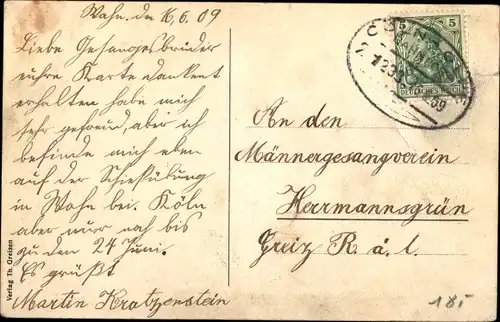 Wahn. den 16/6. 09
Liebe Gesangesbrüder
eühre Karte dankent
erhalten habe mich
sehr gefreud, aber ich
befinde mich eben
auf der Schießübung
in Wahn bei. Köln
aber nur noch bis
zu den 24 Juni.
Es grüßt
Martin Kratzenstein
Verlag Th. Greisen
5
DEUTSCHES REICH
CÖLN
09
An den
Männergesangverein
Herrmannsgrün
Greiz R. ä. l.
18.-